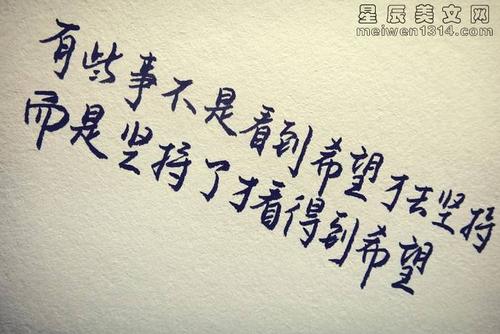 星辰美文网
meiwen1314.com
有些事不是看到希望才去坚持
而是坚持了才看得到希望